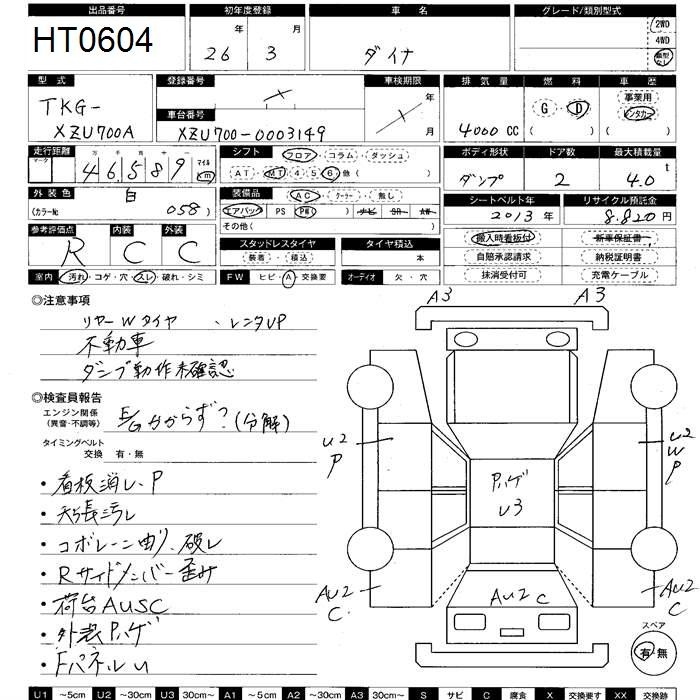 出品番号 初年度登録 車名 グレード/類別型式
HT0604 26年 3月 ダイナ 2WD
4WD
類型なし
型式 登録番号 車検期限 排気量 燃料 車歴
TKG-XZU700A 年 月 4000 CC G・D 事業用
レンタカー
車台番号
XZU700-0003149
走行距離 46,589 マイル km シフト フロア・コラム・ダッシュ ボディ形状 ドア数 最大積載量
マーク 万 千 百 十 一 AT・MT(4 5 6)他( ) ダンプ 2 4.0 t
外装色 白 装備品 AC・クーラー・無し シートベルト年 リサイクル預託金
(カラーNo 058) エアバック PS PW( ) ナビ SR AW 2013年 8,820円
その他(
参考評価点 内装 外装 スタッドレスタイヤ タイヤ積込 搬入時看板付 新車保証書
R C C (装着・積込) 本 自賠承認請求 納税証明書
室内 汚れ・コゲ・穴・スレ・破れ・シミ FW ヒビ・A・交換要 オーディオ 欠・穴 抹消受付可 充電ケーブル
◎注意事項
リヤーWタイヤ ・レンタUP
不動車
ダンプ動作未確認
◎検査員報告
エンジン関係
(異音・不調等) E/G分からず?(分解)
タイミングベルト
交換 有・無
・看板消し・P
・天張汚れ
・コボレーン曲り、破れ
・Rサイドメンバー歪み
・荷台AUSC
・外装P,ハゲ
・FパネルU
A3 A3
U2
P
U2
W
P
P,ハゲ
U3
AU2
C
AU2C
AU2
C
スペア
有・無
U1 ～5cm U2 ～30cm U3 30cm～ A1 ～5cm A2 ～30cm A3 30cm～ S サビ C 腐食 X 交換要す XX 交換跡